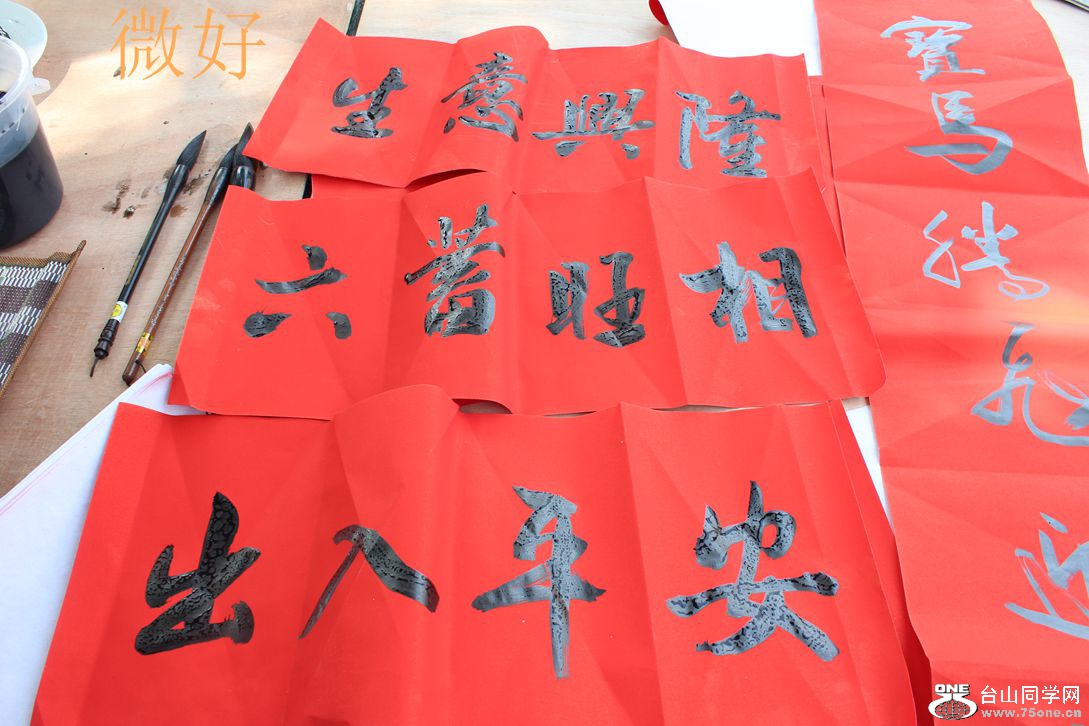 微好
生意興隆
六蓄旺相
出入平安
寶馬騰飛
台山同学网
www.75one.cn
ONE